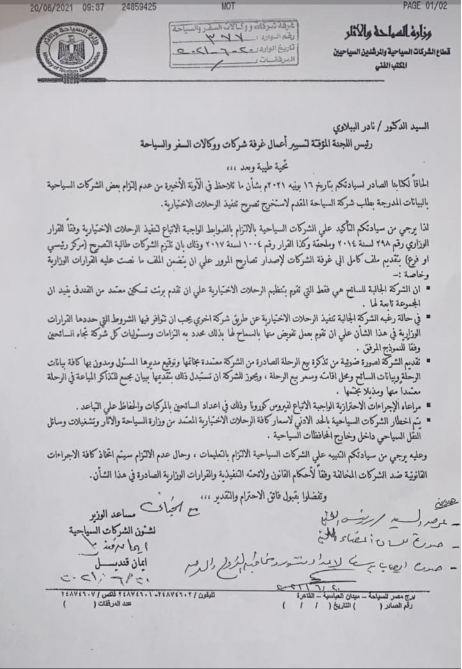 20/06/2021 09:37 24859425 MOT PAGE 01/02
وزارة السياحة والآثار
قطاع الشركات السياحية والمرشدين السياحيين
المكتب الفني
غرفة شركات ووكالات السفر والسياحة
رقم الوارد:
تاريخ الوارد:
المرفقات:
السيد الدكتور / نادر الببلاوي
رئيس اللجنة المؤقتة لتسيير أعمال غرفة شركات ووكالات السفر والسياحة
تحية طيبة وبعد ،،،
الحاقاً لكتابنا الصادر لسيادتكم بتاريخ ١٦ يونيه ٢٠٢١م بشأن ما تلاحظ في الآونة الأخيرة من عدم إلتزام بعض الشركات السياحية
بالبيانات المدرجة بطلب شركة السياحة المقدم لاستخرج تصريح تنفيذ الرحلات الاختيارية.
لذا يرجي من سيادتكم التأكيد علي الشركات السياحية بالالتزام بالضوابط الواجبة الاتباع لتنفيذ الرحلات الاختيارية وفقاً للقرار
الوزاري رقم ٢٩٨ لسنة ٢٠١٤ وملحقة وكذا القرار رقم ١٠٠٤ لسنة ٢٠١٧ وذلك بان تلتزم الشركات طالبة التصريح (مركز رئيسي
او فرع) بتقديم ملف كامل الي غرفة الشركات لإصدار تصاريح المرور علي ان يتضمن الملف ما نصت عليه القرارات الوزارية
وخاصة :-
ان الشركة الجالبة للسائح هي فقط التي تقوم بتنظيم الرحلات الاختيارية علي ان تقدم برنت تسكين معتمد من الفندق يفيد ان
المجموعة تابعة لها .
في حالة رغبه الشركة الجالبة تنفيذ الرحلات الاختيارية عن طريق شركة اخري يجب ان تتوافر فيها الشروط التي حددها القرارات
الوزارية في هذا الشأن علي ان تقوم بعمل تفويض منها بالسماح لها بذلك محدد به التزامات ومسئوليات كل شركة تجاه السائحين
وفقا للنموذج المرفق .
تقديم الشركة لصورة ضوئية من تذكرة بيع الرحلة الصادرة من الشركة معتمدة بخاتمها وتوقيع مديرها المسئول ومدون بها كافة بيانات
الرحلة وبيانات السائح ومحل اقامته وسعر بيع الرحلة ، ويجوز للشركة ان تستبدل ذلك بتقديمها بيان مجمع للتذاكر المباعة في الرحلة
معتمداً منها ومذيلا بختمها .
مراعاه الإجراءات الاحترازية الواجبة الاتباع لفيروس كورونا وذلك في اعداد السائحين بالمركبات والحفاظ علي التباعد .
يتم اخطار الشركات السياحية بالحد الادني لاسعار كافة الرحلات الاختيارية المعتمد من وزارة السياحة والاثار وتشغيلات وسائل
النقل السياحي داخل وخارج المحافظات السياحية .
وعليه يرجي من سيادتكم التنبيه علي الشركات السياحية الالتزام بالتعليمات ، وحال عدم الالتزام سيتم اتخاذ كافة الاجراءات
القانونية ضد الشركات المخالفة وفقاً لأحكام القانون ولائحته التنفيذية والقرارات الوزارية الصادرة في هذا الشأن.
وتفضلوا بقبول فائق الاحترام والتقدير ،،،
مساعد الوزير
لشئون الشركات السياحية
ايمان قنديل
برج مصر للسياحة – ميدان العباسية – القاهرة
رقم الصادر ( ) التاريخ ( / / ) عدد المرفقات ( )